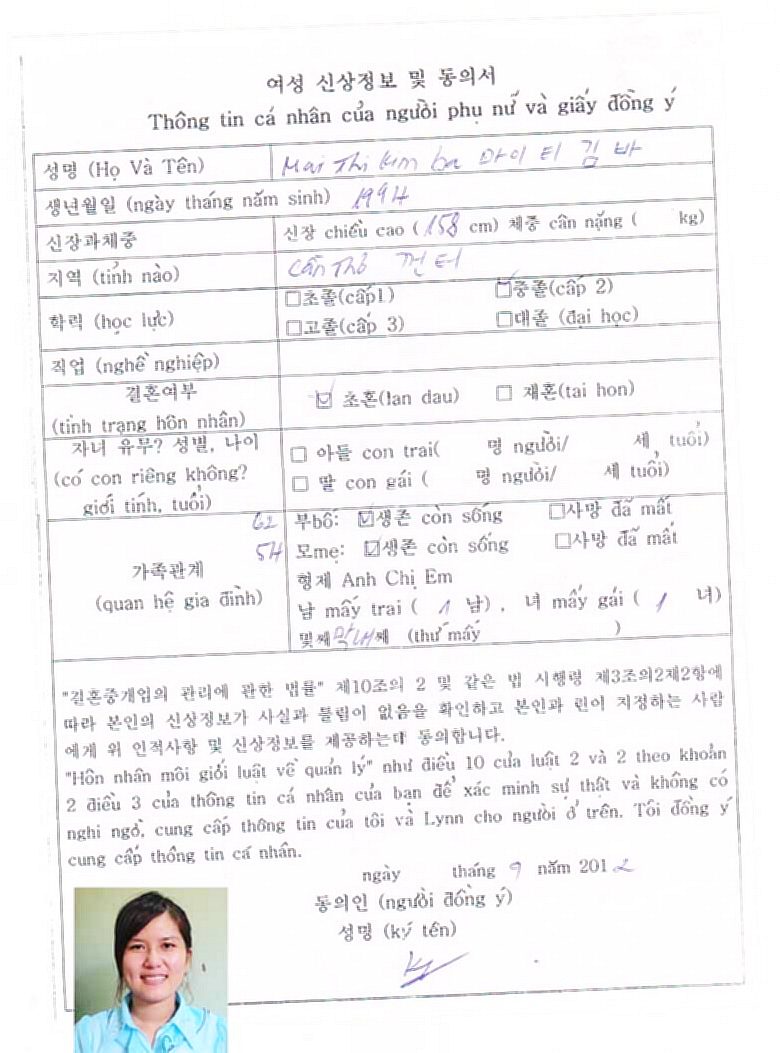 여성 신상정보 및 동의서
Thông tin cá nhân của người phụ nữ và giấy đồng ý
성명 (Họ Và Tên) Mai Thi Kim ba 마이 티 김 바
생년월일 (ngày tháng năm sinh) 1994
신장과체중 신장 chiều cao ( 158 cm) 체중 cân nặng ( kg)
지역 (tỉnh nào) Cần Thơ 껀 터
학력 (học lực) □초졸(cấp1) ☑중졸(cấp 2)
□고졸(cấp 3) □대졸 (đại học)
직업 (nghề nghiệp)
결혼여부 (tình trạng hôn nhân) ☑ 초혼(lan dau) □ 재혼(tai hon)
자녀 유무? 성별, 나이 □ 아들 con trai( 명 người/ 세 tuổi)
(có con riêng không? □ 딸 con gái ( 명 người/ 세 tuổi)
giới tính, tuổi)
62 부bố: ☑생존 còn sống □사망 đã mất
54 모mẹ: ☑생존 còn sống □사망 đã mất
가족관계 형제 Anh Chị Em
(quan hệ gia đình) 남 mấy trai ( 1 남) , 녀 mấy gái ( 1 녀)
몇째 막내째 (thứ mấy )
"결혼중개업의 관리에 관한 법률" 제10조의 2 및 같은 법 시행령 제3조의2제2항에
따라 본인의 신상정보가 사실과 틀림이 없음을 확인하고 본인과 린이 지정하는 사람
에게 위 인적사항 및 신상정보를 제공하는데 동의합니다.
"Hôn nhân môi giới luật về quản lý" như điều 10 của luật 2 và 2 theo khoản
2 điều 3 của thông tin cá nhân của bạn để xác minh sự thật và không có
nghi ngờ, cung cấp thông tin của tôi và Lynn cho người ở trên. Tôi đồng ý
cung cấp thông tin cá nhân.
ngày tháng 9 năm 2012
동의인 (người đồng ý)
성명 (ký tên)